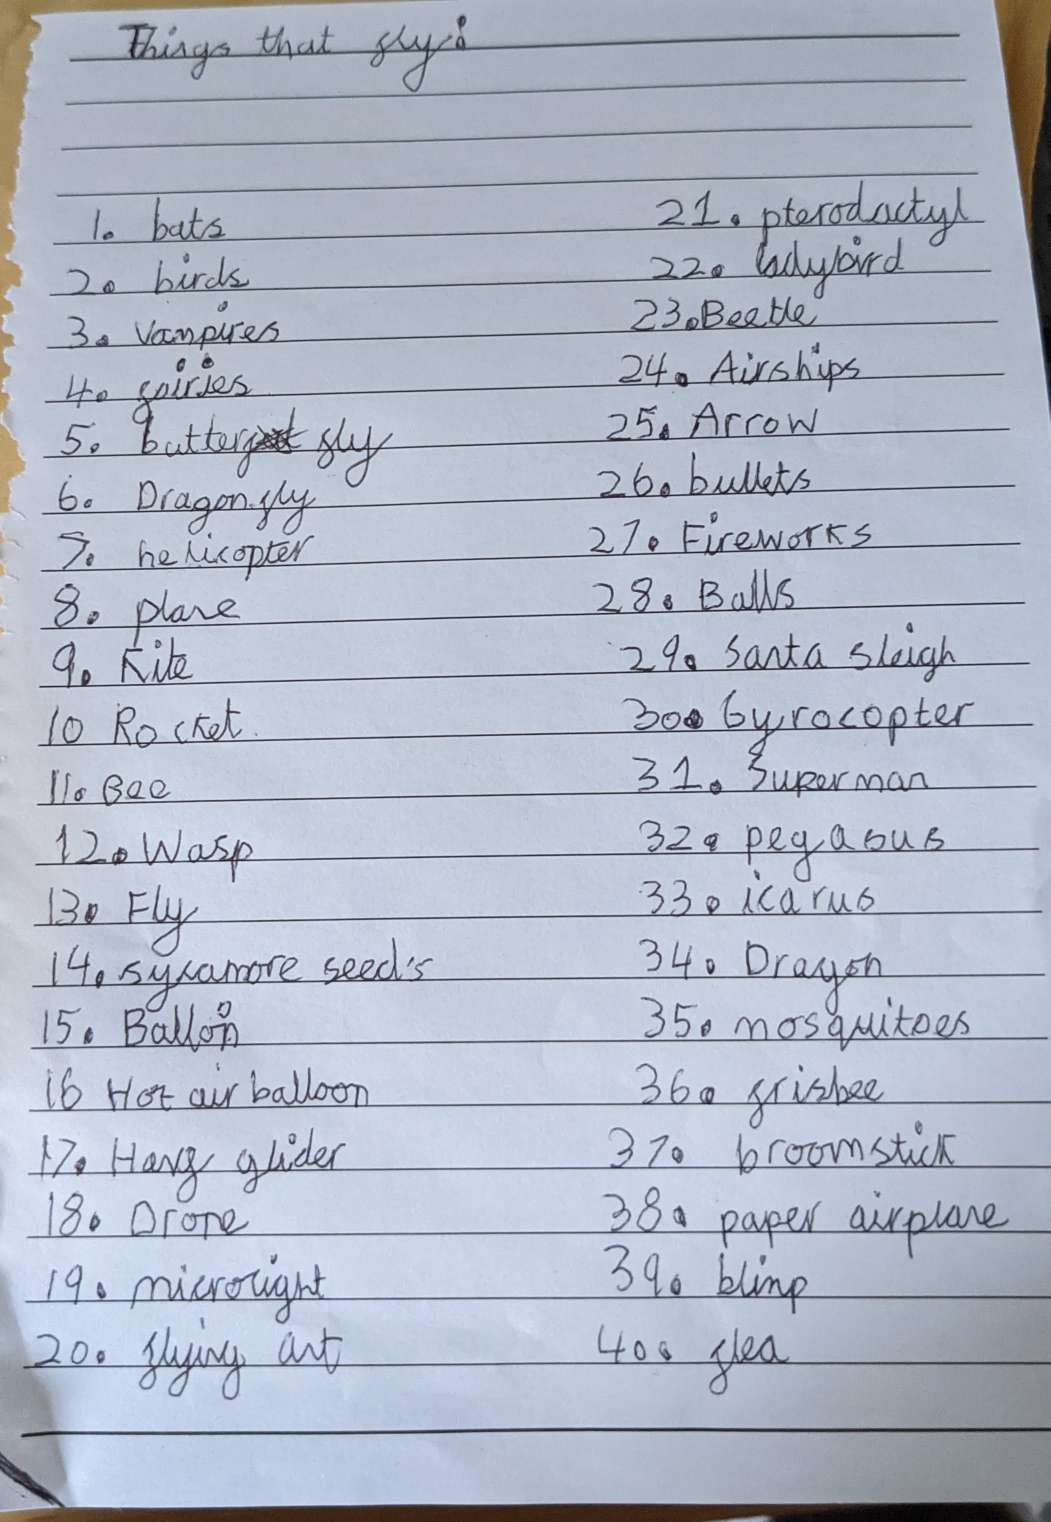 Things that fly:
1. bats
2. birds
3. Vampires
4. fairies
5. butter fly
6. Dragonfly
7. helicopter
8. plane
9. Kite
10 Rocket.
11. Bee
12. Wasp
13. Fly
14. sycamore seed's
15. Balloon
16 Hot air balloon
17. Hang glider
18. Drone
19. microlight
20. flying ant
21. pterodactyl
22. ladybird
23. Beetle
24. Airships
25. Arrow
26. bullets
27. Fireworks
28. Balls
29. Santa sleigh
30. Gyrocopter
31. Superman
32. pegasus
33. icarus
34. Dragon
35. mosquitoes
36. frisbee
37. broomstick
38. paper airplane
39. blimp
40. flea